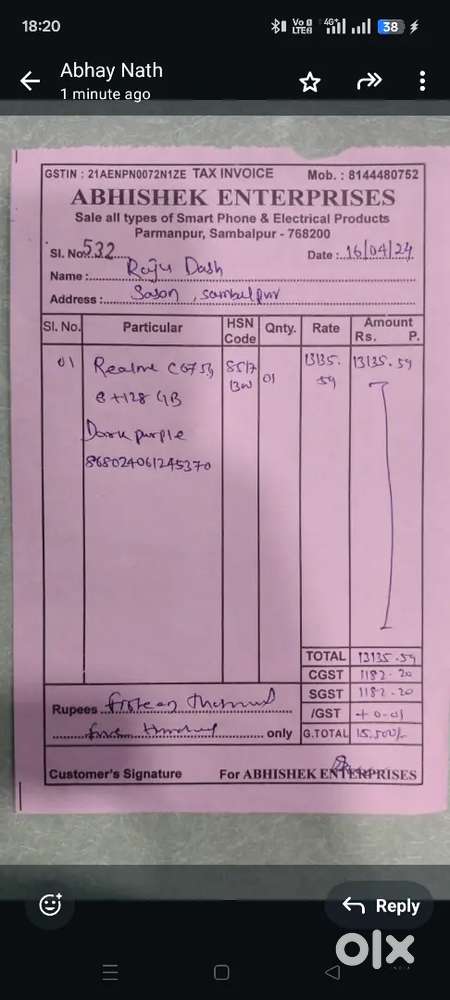 18:20
Vo LTE2 4G+ 38
Abhay Nath
1 minute ago
GSTIN : 21AENPN0072N1ZE TAX INVOICE Mob. : 8144480752
ABHISHEK ENTERPRISES
Sale all types of Smart Phone & Electrical Products
Parmanpur, Sambalpur - 768200
Sl. No. 532 Date : 16/04/24
Name : Raju Dash
Address : Sason, Sambalpur
Sl. No. Particular HSN Code Qnty. Rate Amount Rs. P.
01 Realme 8517 01 13135. 13135.59
8+128 GB 59
Dark purple
868024061245370
TOTAL 13135.59
CGST 1182.20
SGST 1182.20
Rupees fifteen Thousand /GST +0.01
five Hundred only G.TOTAL 15,500/-
Customer's Signature For ABHISHEK ENTERPRISES
Reply
olx